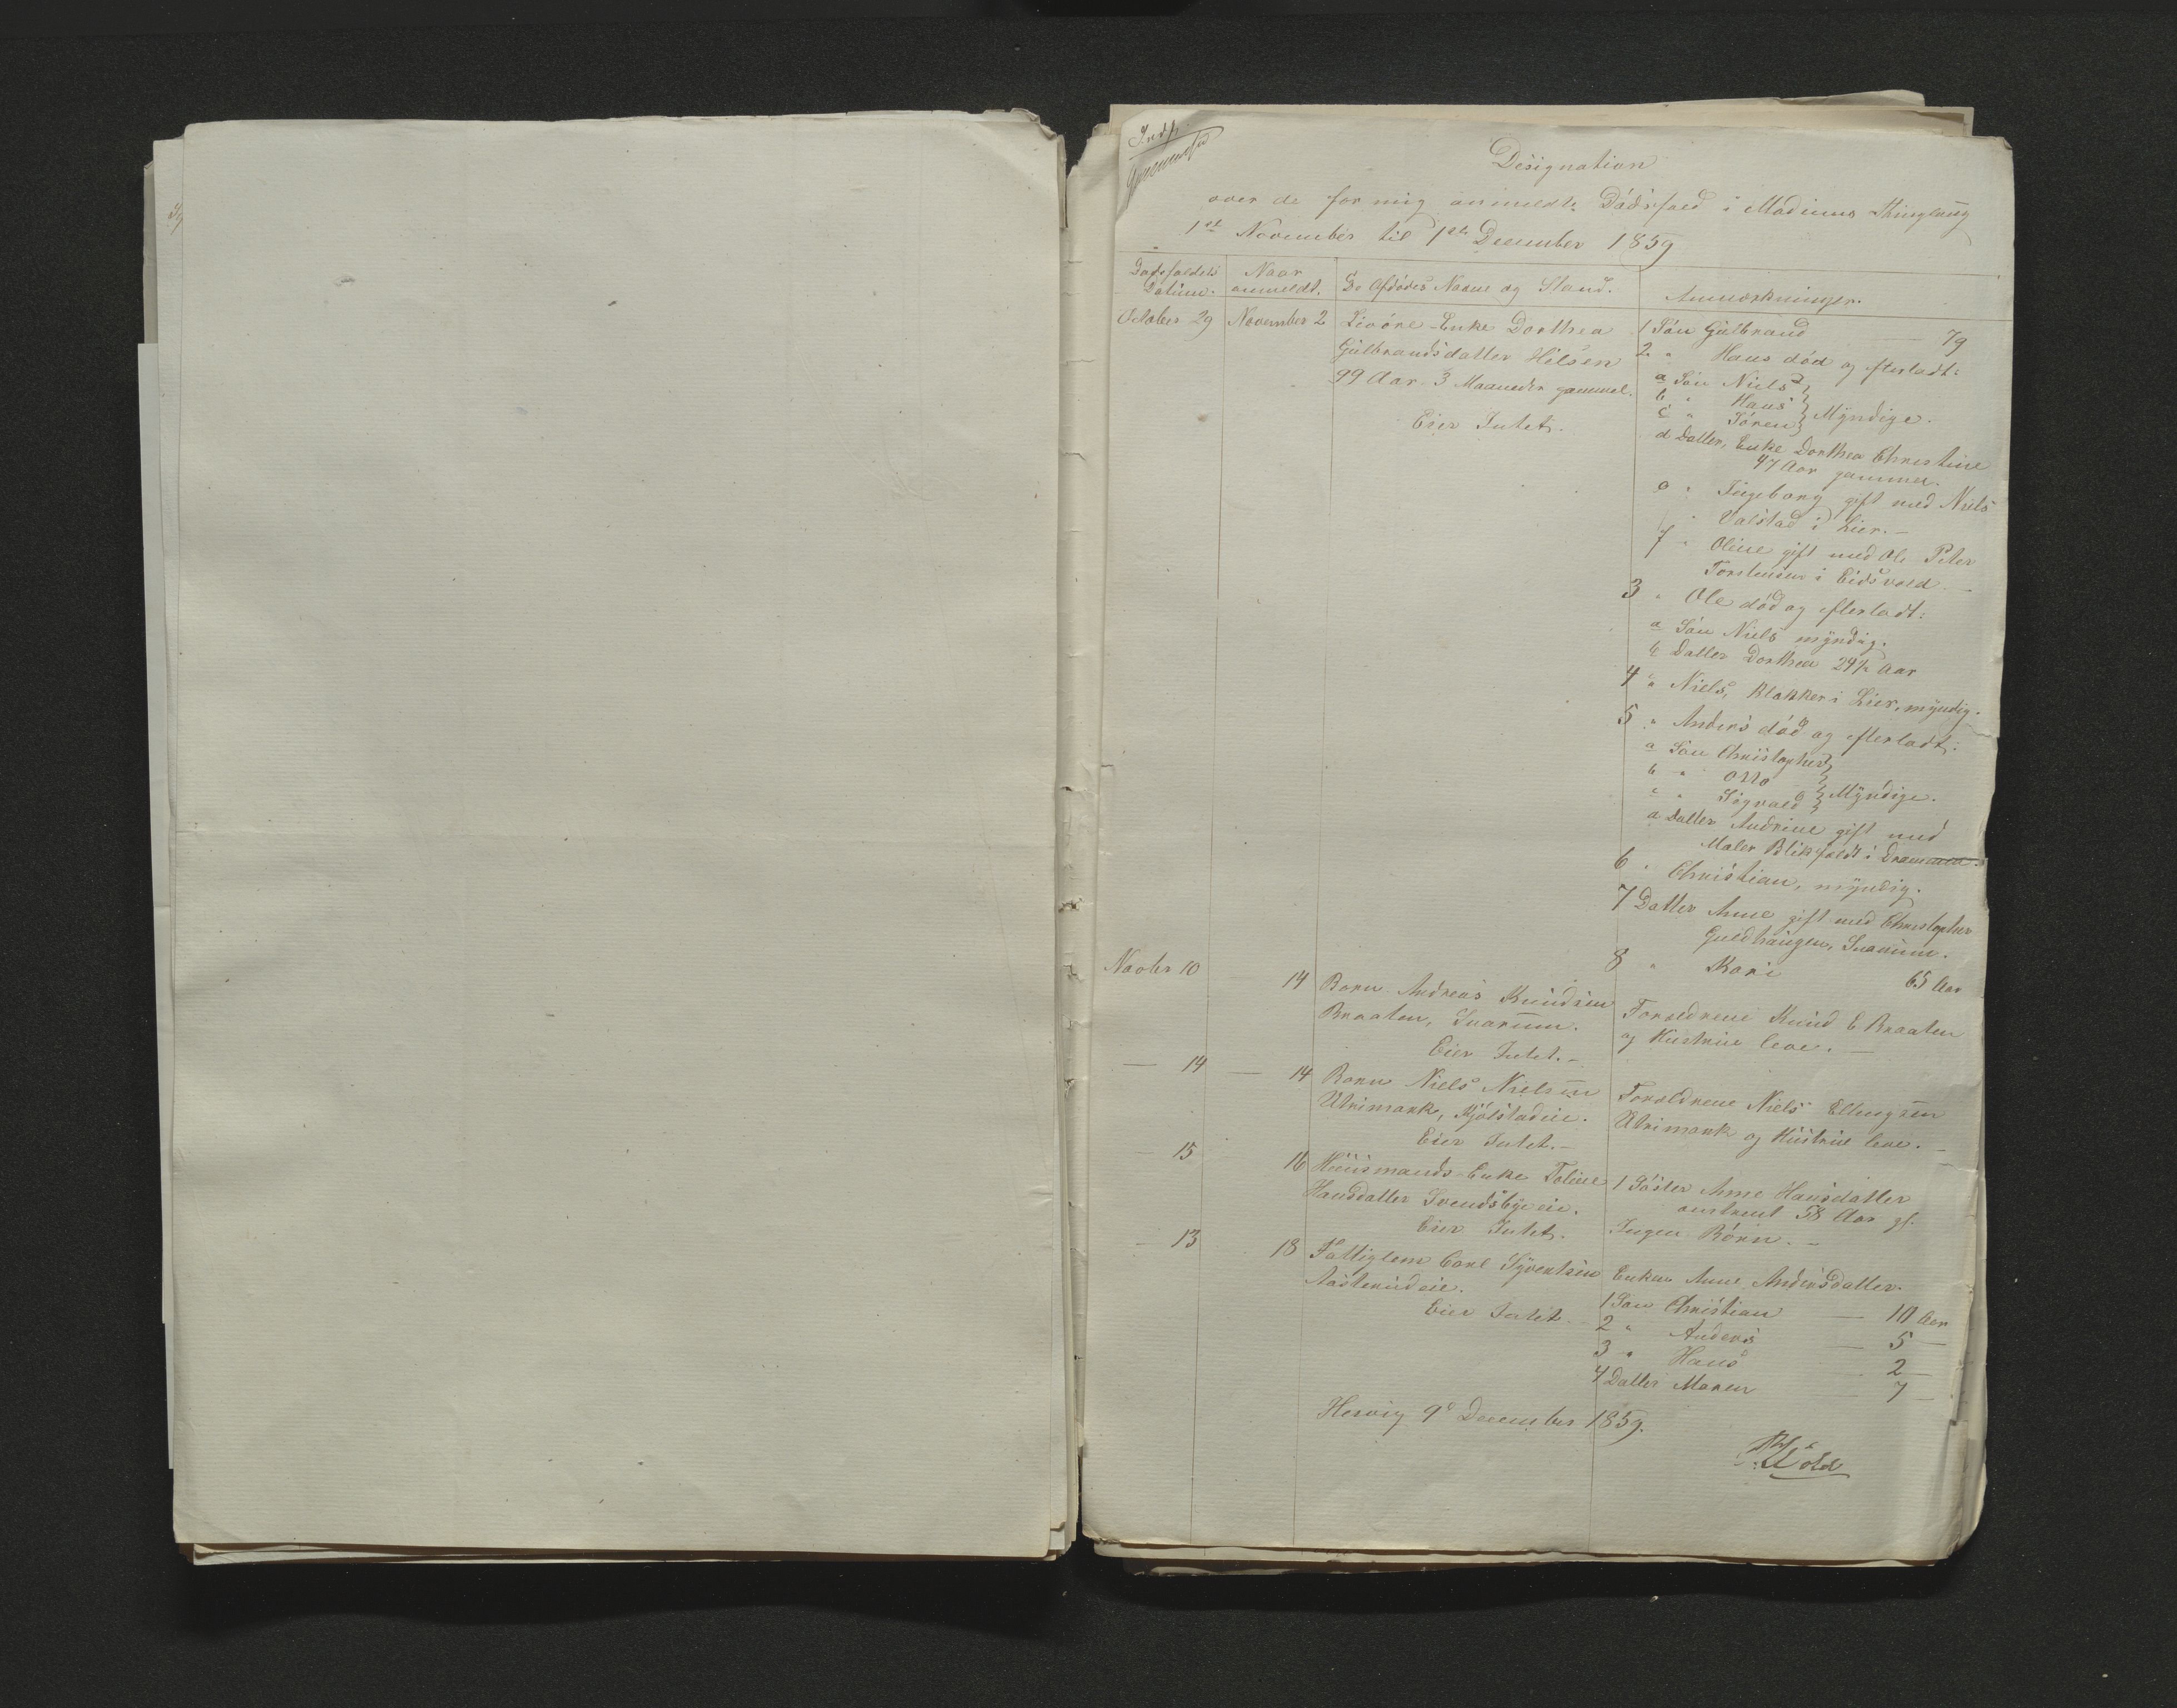 Designation
over de for mig anmeldte Dødsfald i Modums Thinglaug
1ste November til 1ste December 1859
Dødsfaldets Datum.
Naar anmeldt.
De Afdødes Navne og Stand.
Anmærkninger.
October 29 November 2 Livøre-Enke Dorthea
Gulbrandsdatter Hilsen
99 Aar 3 Maaneder gammel.
Eier Intet.
1 Søn Gulbrand 79
2 " Hans død og efterladt:
a Søn Niels
b " Hans } Myndige.
c " Søren
d Datter, Enke Dorthea Christine
47 Aar gammel.
e " Ingeborg gift med Niels
Valstad i Lier.-
f " Oline gift med Ole Peter
Torstensen i Eidsvold.-
3 " Ole død og efterladt:
a Søn Niels myndig.
b Datter Dorthea 24½ Aar
4 " Niels, Klokker i Lier, myndig.
5 " Anders død og efterladt:
a Søn Christopher
b " Otto } Myndige.
c " Sigvald
d Datter Andrine gift med
Maler Blikfeldt i Drammen.
6 " Christian, myndig.
7 Datter Anne gift med Christopher
Guldhaugen, Snarum.
8 " Kari 65 Aar
Novbr 10 14 Barn Andreas Knudsen
Braaten, Snarum.
Eier Intet.-
Forældrene Knud E Braaten
og Hustrue leve.-
— 14 — 14 Barn Niels Nielsen
Utrimark, Kjølstadeie.
Eier Intet.-
Forældrene Niels Ellingsen
Utrimark og Hustrue leve.-
— 15 16 Huusmands-Enke Toline
Hansdatter Svendsbyeie.
Eier Intet.
1 Søster Anne Hansdatter
omtrent 58 Aar gl.
Ingen Børn.-
— 13 18 Fattiglem Carl Syvertsen
Aasterudeie.
Eier Intet.
Enken Anne Andersdatter.
1 Søn Christian — 10 Aar
2 " Anders — 5 —
3 " Hans 2 —
4 Datter Maren — 7 —
Hervig 9de December 1859.